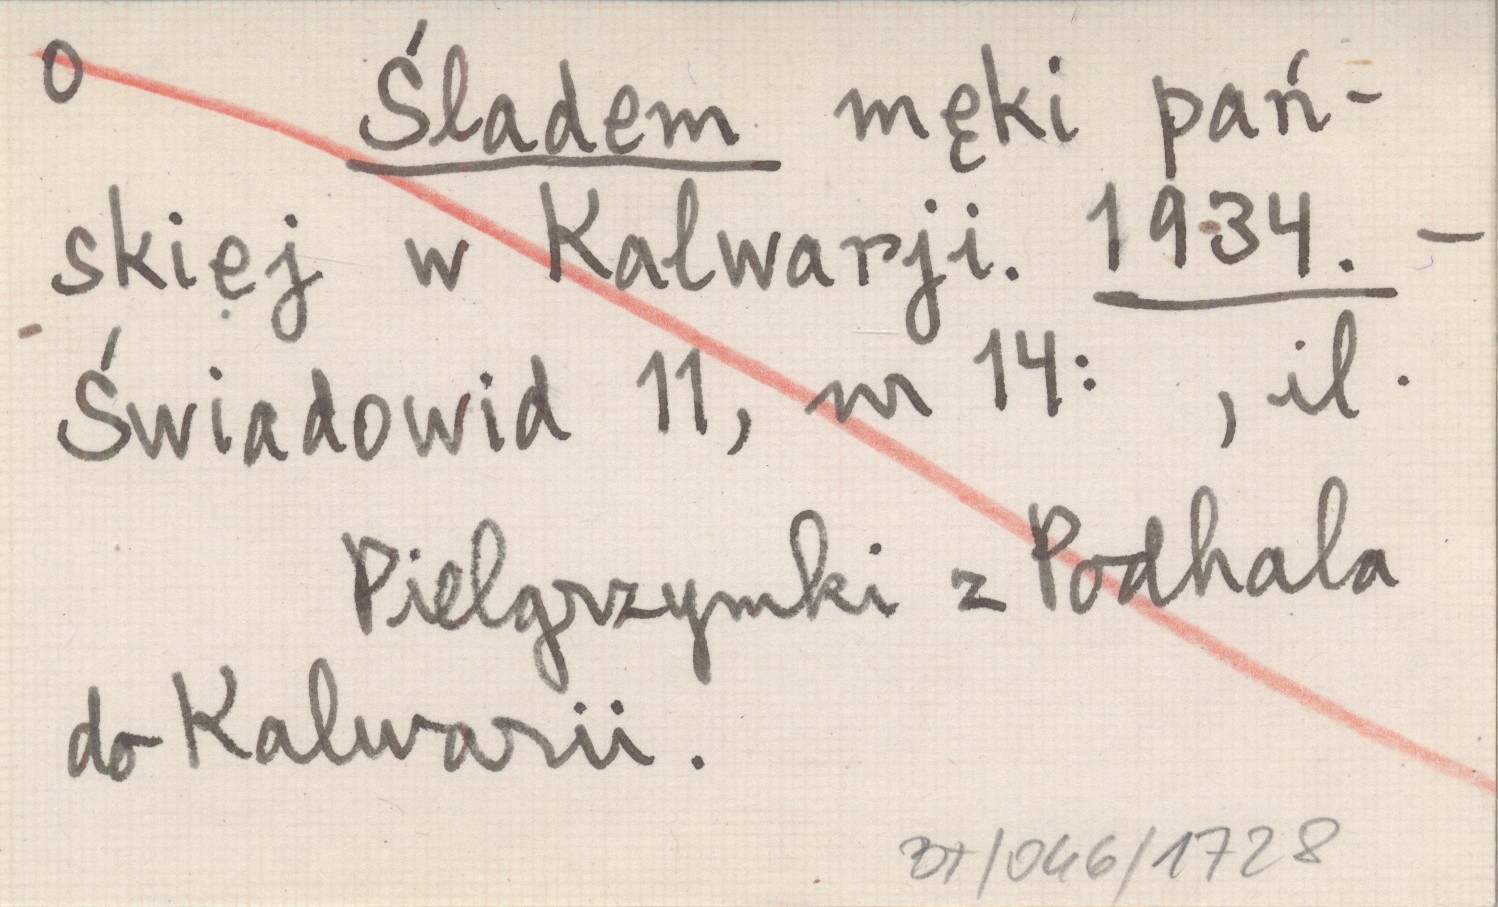 0 Śladem męki pań-
skięj w Kalwarji. 1934. —
Światowid 11, nr 14: , il.
Pielgrzymki z Podhala
do Kalwarii.
BT/046/1728